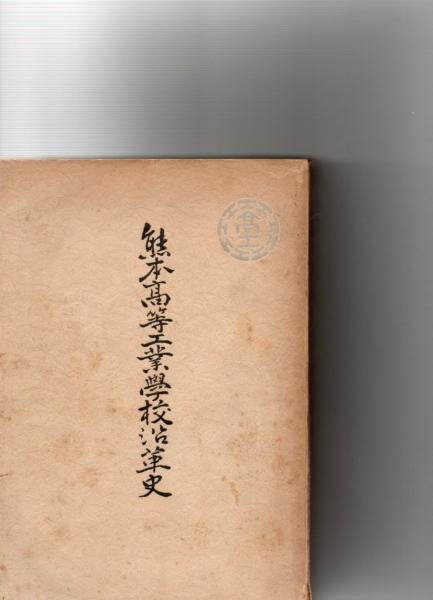 熊本高等工業學校沿革史
高工